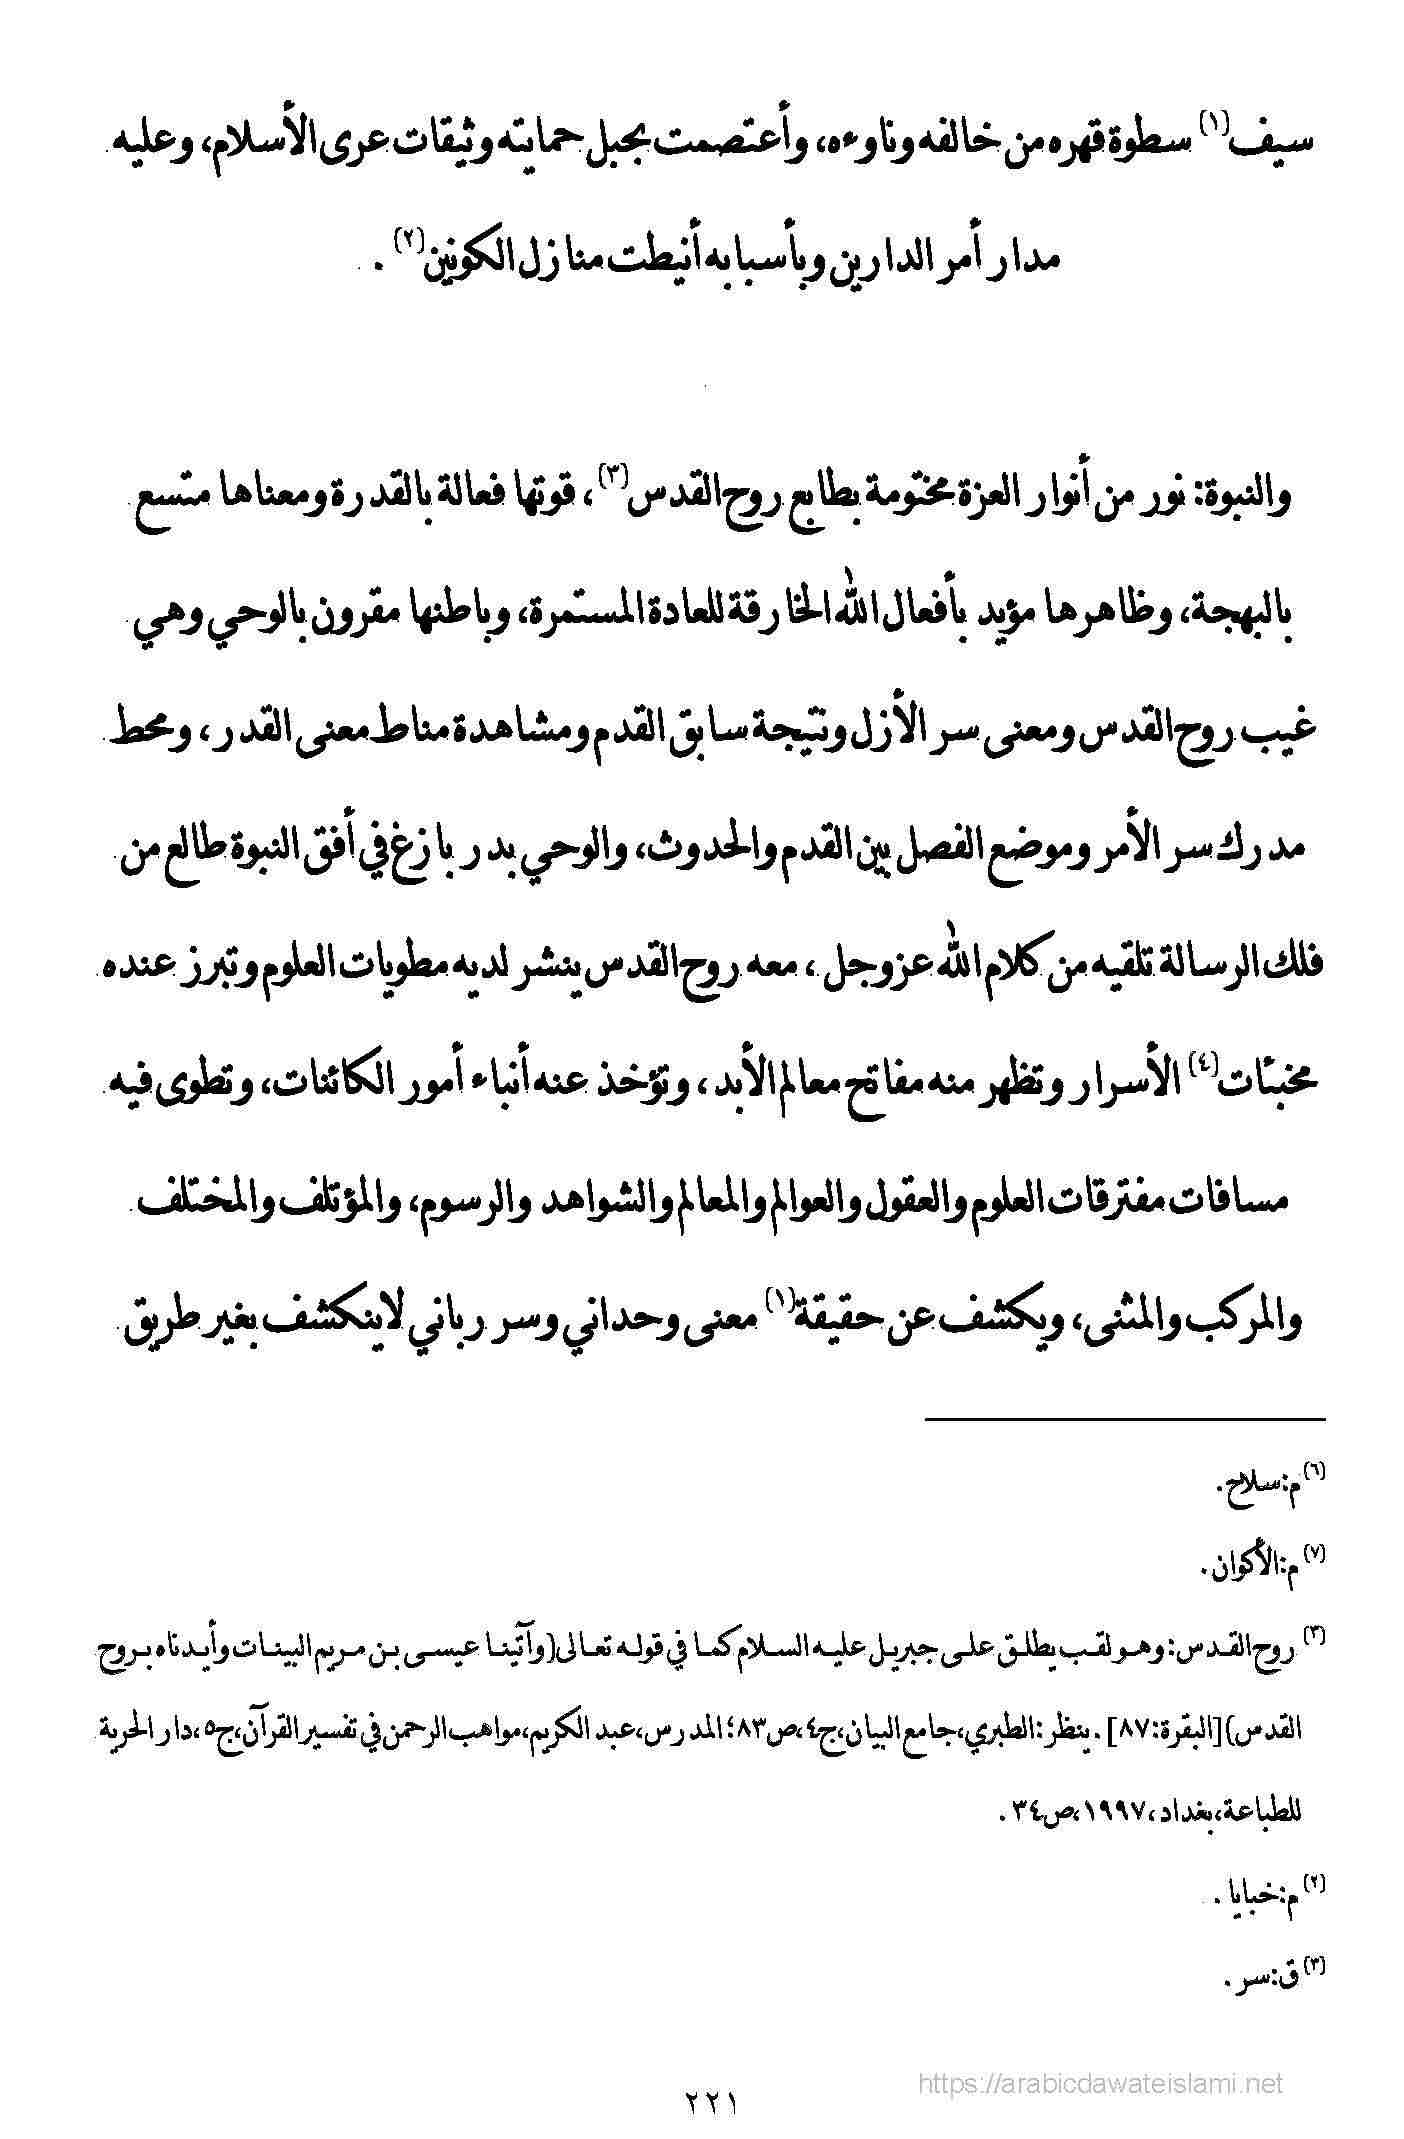 سيف(١) سطوة قهره من خالفه وناوءه، وأعتصمت بجبل حمايته وثيقات عرى الأسلام، وعليه
مدار أمر الدارين وبأسبابه أنيطت منازل الكونين(٢) .
والنبوة: نور من أنوار العزة مختومة بطابع روح القدس(٣)، قوتها فعالة بالقدرة ومعناها متسع
بالبهجة، وظاهرها مؤيد بأفعال الله الخارقة للعادة المستمرة، وباطنها مقرون بالوحي وهي
غيب روح القدس ومعنى سر الأزل ونتيجة سابق القدم ومشاهدة مناط معنى القدر، ومحط
مدرك سر الأمر وموضع الفصل بين القدم والحدوث، والوحي بدر بازغ في أفق النبوة طالع من
فلك الرسالة تلقيه من كلام الله عز وجل ، معه روح القدس ينشر لديه مطويات العلوم وتبرز عنده
مخبئات(٤) الأسرار وتظهر منه مفاتح معالم الأبد ، وتؤخذ عنه أنباء أمور الكائنات، وتطوى فيه
مسافات مفترقات العلوم والعقول والعوالم والمعالم والشواهد والرسوم، والمؤتلف والمختلف
والمركب والمثنى، ويكشف عن حقيقة(١) معنى وحداني وسر رباني لاينكشف بغير طريق
(٦) م:سلاح.
(٧) م:الأكوان.
(٣) روح القدس: وهو لقب يطلق على جبريل عليه السلام كما في قوله تعالى(وآتينا عيسى بن مريم البينات وأيدناه بروح
القدس)[البقرة:٨٧] . ينظر: الطبري،جامع البيان،ج٤،ص٨٣؛ المدرس،عبد الكريم،مواهب الرحمن في تفسير القرآن،ج٥،دار الحرية
للطباعة،بغداد،١٩٩٧،ص٣٤ .
(٢) م:خبايا .
(٣) ق:سر .
https://arabicdawateislami.net
٢٢١